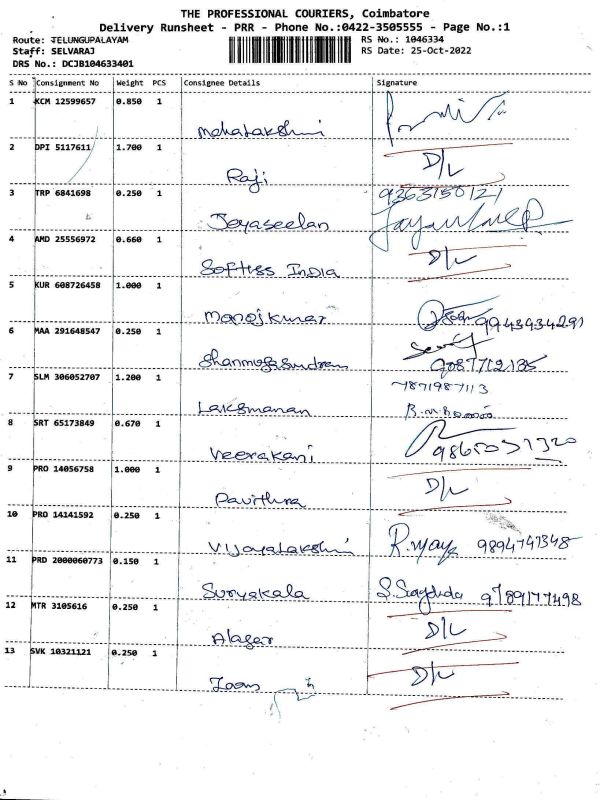 THE PROFESSIONAL COURIERS, Coimbatore
Delivery Runsheet - PRR - Phone No.:0422-3505555 - Page No.:1
Route: TELUNGUPALAYAM RS No.: 1046334
Staff: SELVARAJ RS Date: 25-Oct-2022
DRS No.: DCJB104633401
S No Consignment No Weight PCS Consignee Details Signature
1 KCM 12599657 0.850 1
Mahalakshmi
2 DPI 5117611 1.700 1 D/L
Raji
3 TRP 6841698 0.250 1 9363150121
Jeyaseelan
4 AMD 25556972 0.660 1 D/L
Softess India
5 KUR 608726458 1.000 1
Manojkumar 9943934291
6 MAA 291648547 0.250 1
9087712135
7 SLM 306052707 1.200 1 7871987113
Lakshmanan
8 SRT 65173849 0.670 1
Veerakani
9 PRO 14056758 1.000 1 D/L
Pavithra
10 PRO 14141592 0.250 1
Vijayalakshmi 9894747348
11 PRD 2000060773 0.150 1
Suryakala 9789177498
12 MTR 3105616 0.250 1 D/L
Alager
13 SVK 10321121 0.250 1 D/L
Zoom